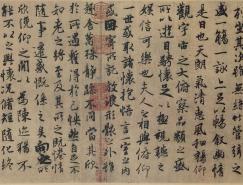 列坐其次雖無絲竹管弦之
盛一觴一詠亦足以暢敘幽情
是日也天朗氣清惠風和暢仰
觀宇宙之大俯察品類之盛
所以遊目騁懷足以極視聽之
娛信可樂也夫人之相與俯仰
一世或取諸懷抱悟言一室之內
或因寄所託放浪形骸之外雖
趣舍萬殊靜躁不同當其欣
於所遇蹔得於己怏然自足不
知老之將至及其所之既惓情
隨事遷感慨係之矣向之所
欣俛仰之間以為陳跡猶不
能不以之興懷況脩短隨化終